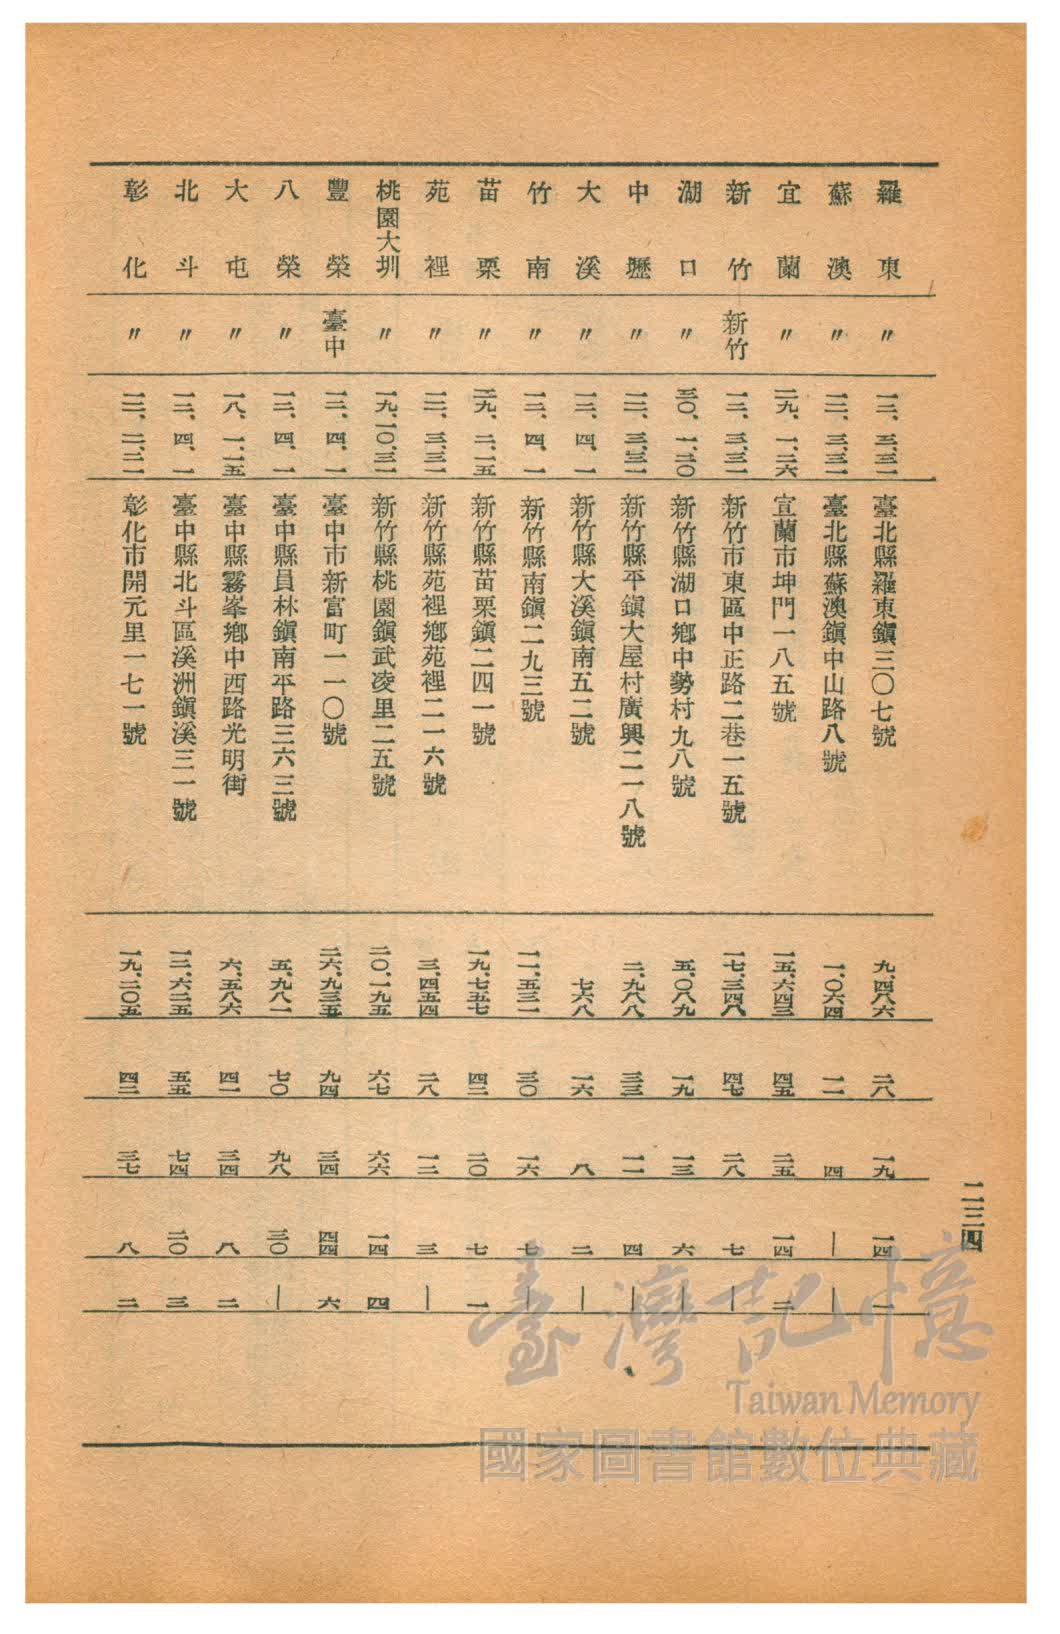 二三四
羅東 〃 一二、三、三一 臺北縣羅東鎭三〇七號 九、四八六 二八 一九 一四 一
蘇澳 〃 一二、三、三一 臺北縣蘇澳鎭中山路八號 一、〇六四 一一 四 — —
宜蘭 〃 二九、一、二六 宜蘭市坤門一八五號 一五、六四三 四五 二五 一四 二
新竹 新竹 一二、三、三一 新竹市東區中正路二巷一五號 一七、三四八 四七 二八 七 —
湖口 〃 三〇、一、二〇 新竹縣湖口鄕中勢村九八號 五、〇八九 一九 一三 六 —
中壢 〃 一二、三、三一 新竹縣平鎭大屋村廣興二一八號 二、九八八 三三 一一 四 —
大溪 〃 一三、四、一 新竹縣大溪鎭南五二號 七六八 一六 八 二 —
竹南 〃 一三、四、一 新竹縣南鎭二九三號 一一、五三一 三〇 一六 七 —
苗栗 〃 二九、二、一五 新竹縣苗栗鎭二四一號 一九、七五七 四二 二〇 七 一
苑裡 〃 一二、三、三一 新竹縣苑裡鄕苑裡二一六號 三、四五四 二八 一二 三 —
桃園大圳 〃 一九、一〇、三一 新竹縣桃園鎭武凌里二五號 二〇、一九五 六七 六六 一四 四
豐榮 臺中 一三、四、一 臺中市新富町一一〇號 二六、九三五 九四 三四 四四 六
八榮 〃 一三、四、一 臺中縣員林鎭南平路三六三號 五、九八一 七〇 九八 三〇 —
大屯 〃 一八、一、一五 臺中縣霧峯鄕中西路光明街 六、五八六 四一 三四 八 二
北斗 〃 一三、四、一 臺中縣北斗區溪洲鎭溪三一號 一二、六二五 五五 七四 二〇 三
彰化 〃 彰化市開元里一七一號 一九、二〇五 四二 三七 八 二
臺灣記憶
Taiwan Memory
國家圖書館數位典藏